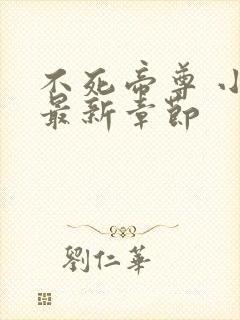 不死帝尊 小
最新章節
劉仁華